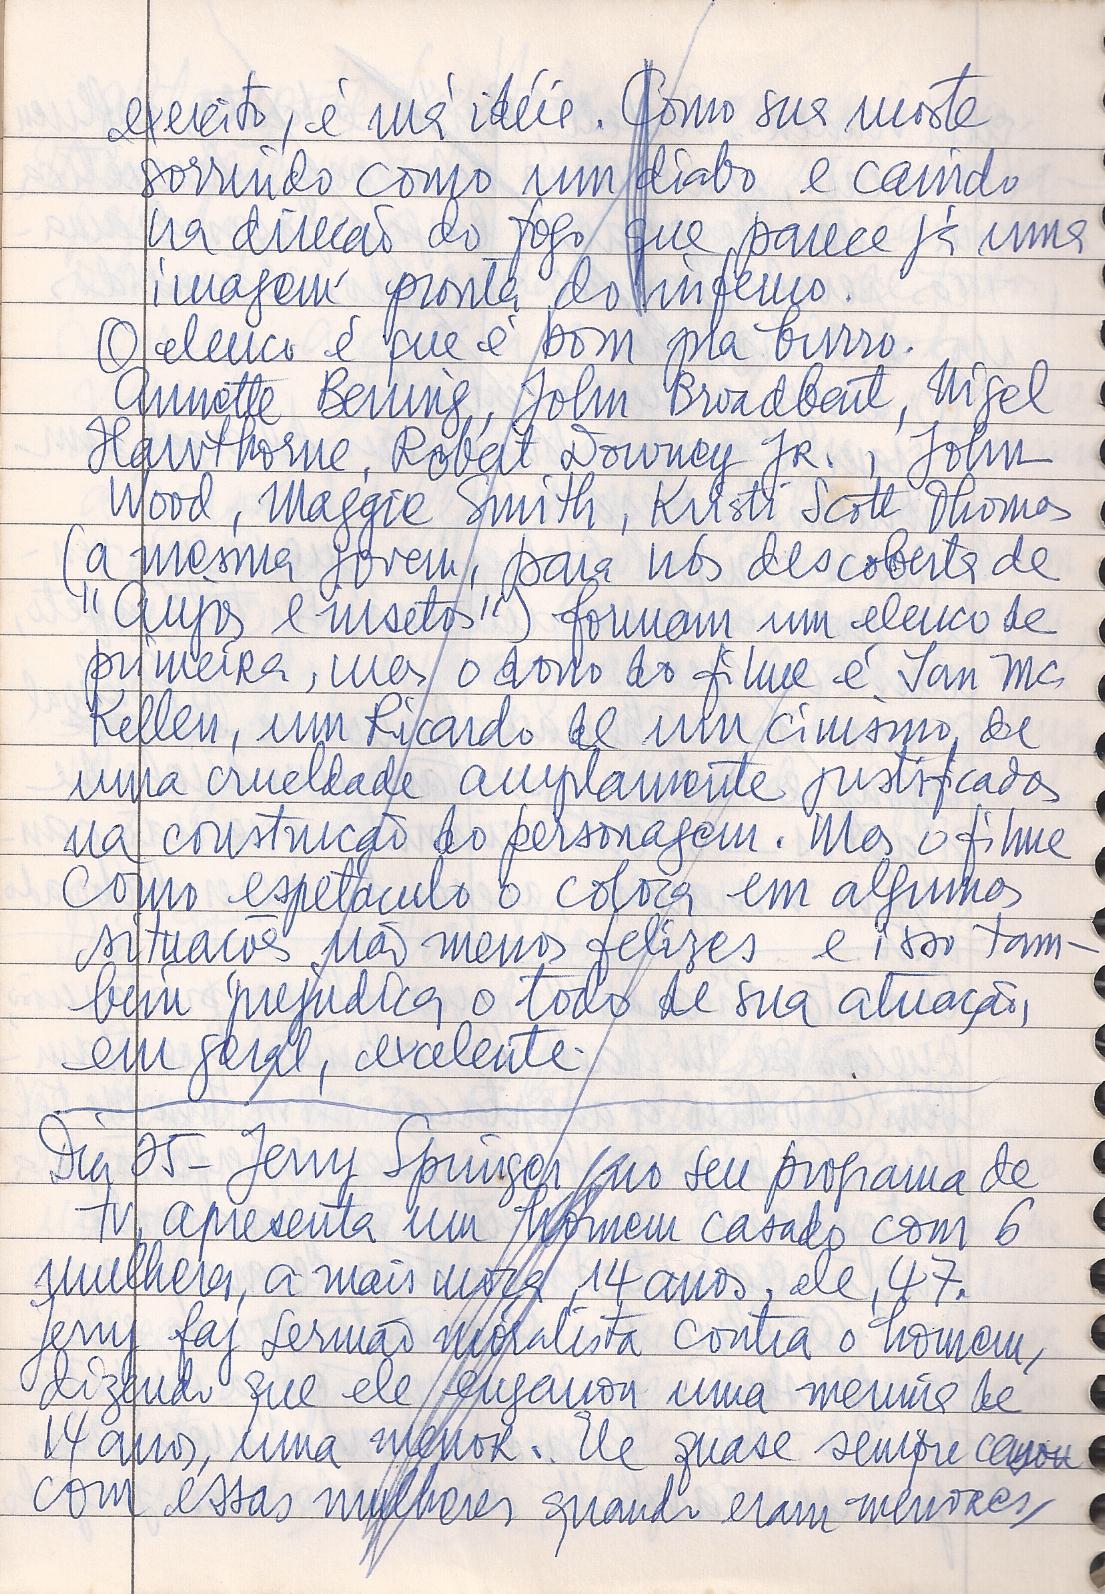 exercito, é má idéia. Como sua morte
sorrindo como um diabo e caindo
na direcão do fogo que parece já uma
imagem pronta do inferno.
O elenco é que é bom pra burro.
Annette Bening, John Broadbent, Nigel
Hawthorne, Robert Downey Jr., John
Wood, Maggie Smith, Kristi Scott Thomas
(a mesma jovem, para nós descoberta de
"Anjos e insetos") formam um elenco de
primeira, mas o dono do filme é Ian Mc
Kellen, um Ricardo de um cinismo, de
uma crueldade amplamente justificados
na construcão do personagem. Mas o filme
como espetaculo o coloca em algumas
situacões não menos felizes e isso tam-
bém prejudica o todo de sua atuação,
em geral, excelente.
Dia 25 - Jerry Springer no seu programa de
tv, apresenta um homem casado com 6
mulheres, a mais moça, 14 anos, ele, 47.
Jerry faz sermão moralista contra o homem,
dizendo que ele enganou uma menina de
14 anos, uma menor. Ele quase sempre casou
com essas mulheres quando eram menores,